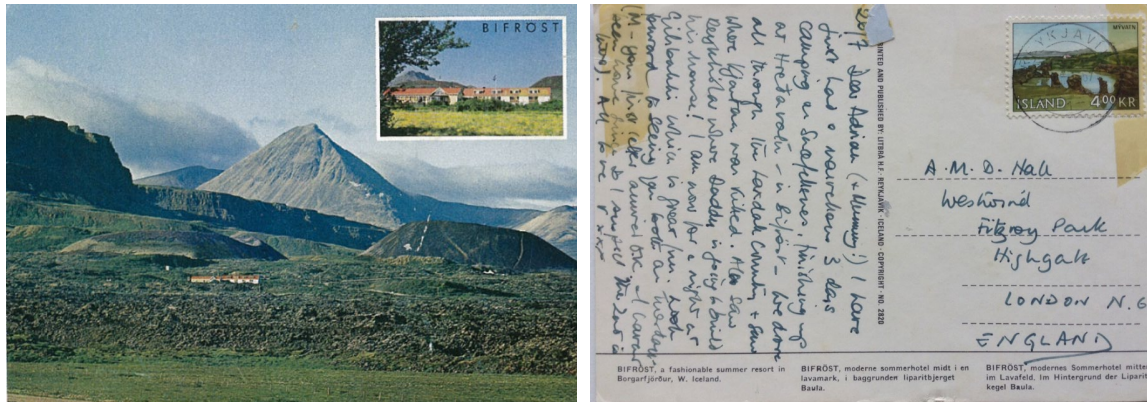 BIFRÖST
2/7 Dear Adrian (+ Mummy!) I have
just had a marvellous 3 days
camping on Snæfellsnes, finishing up
at Hreðavatn - in bifröst - we drove
all through the Laxdæla country, & saw
where Kjartan was killed. Also saw
where Daddy is going to build
his house! I am now for a night at
which is great fun. Look
forward to seeing you both on Wednesday
(M - your
been
love). All love
xxx
PRINTED AND PUBLISHED BY: LITBRÁ H.F. REYKJAVÍK - ICELAND - COPYRIGHT - NO. 2820
MÝVATN
YKJAVÍ
ÍSLAND 4.00KR
A.M.D. Hall
Westwind
Fitzroy Park
Highgate
LONDON N.
ENGLAND
BIFRÖST, a fashionable summer resort in
Borgarfjörður, W. Iceland.
BIFRÖST, moderne sommerhotel midt i en
lavamark, i baggrunden liparitbjerget
Baula.
BIFRÖST, modernes Sommerhotel mitten
im Lavafeld. Im Hintergrund der Liparit
kegel Baula.